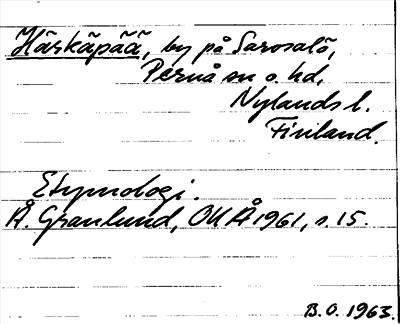 Härkäpää, by på Sarvsalö,
Pernå sn o. hd,
Nylands l.
Finland.
Etymologi.
Å. Granlund, OUÅ 1961, s. 15.
B.O. 1963.